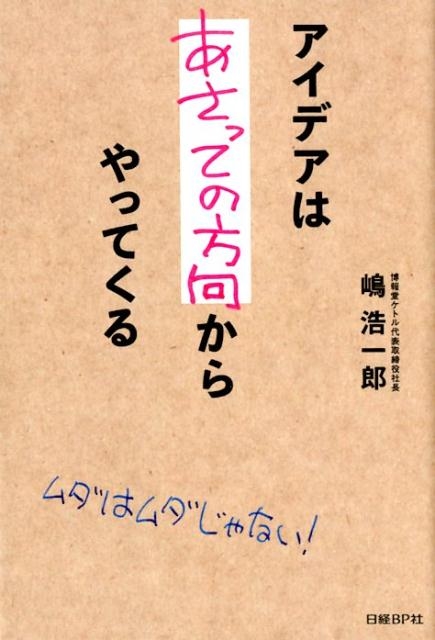 アイデアは
あさっての方向から
やってくる
博報堂ケトル代表取締役社長
嶋 浩一郎
ムダはムダじゃない!
日経BP社